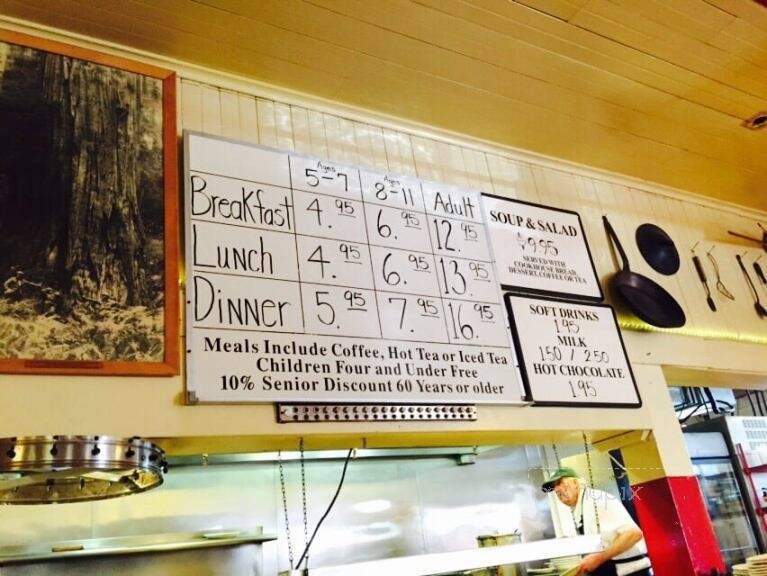 Ages Ages
5-7 8-11 Adult
Breakfast 4.95 6.95 12.95
Lunch 4.95 6.95 13.95
Dinner 5.95 7.95 16.95
Meals Include Coffee, Hot Tea or Iced Tea
Children Four and Under Free
10% Senior Discount 60 Years or older
SOUP & SALAD
$9.95
SERVED WITH
COOKHOUSE BREAD,
DESSERT, COFFEE OR TEA
SOFT DRINKS
1.95
MILK
1.50 / 2.50
HOT CHOCOLATE
1.95